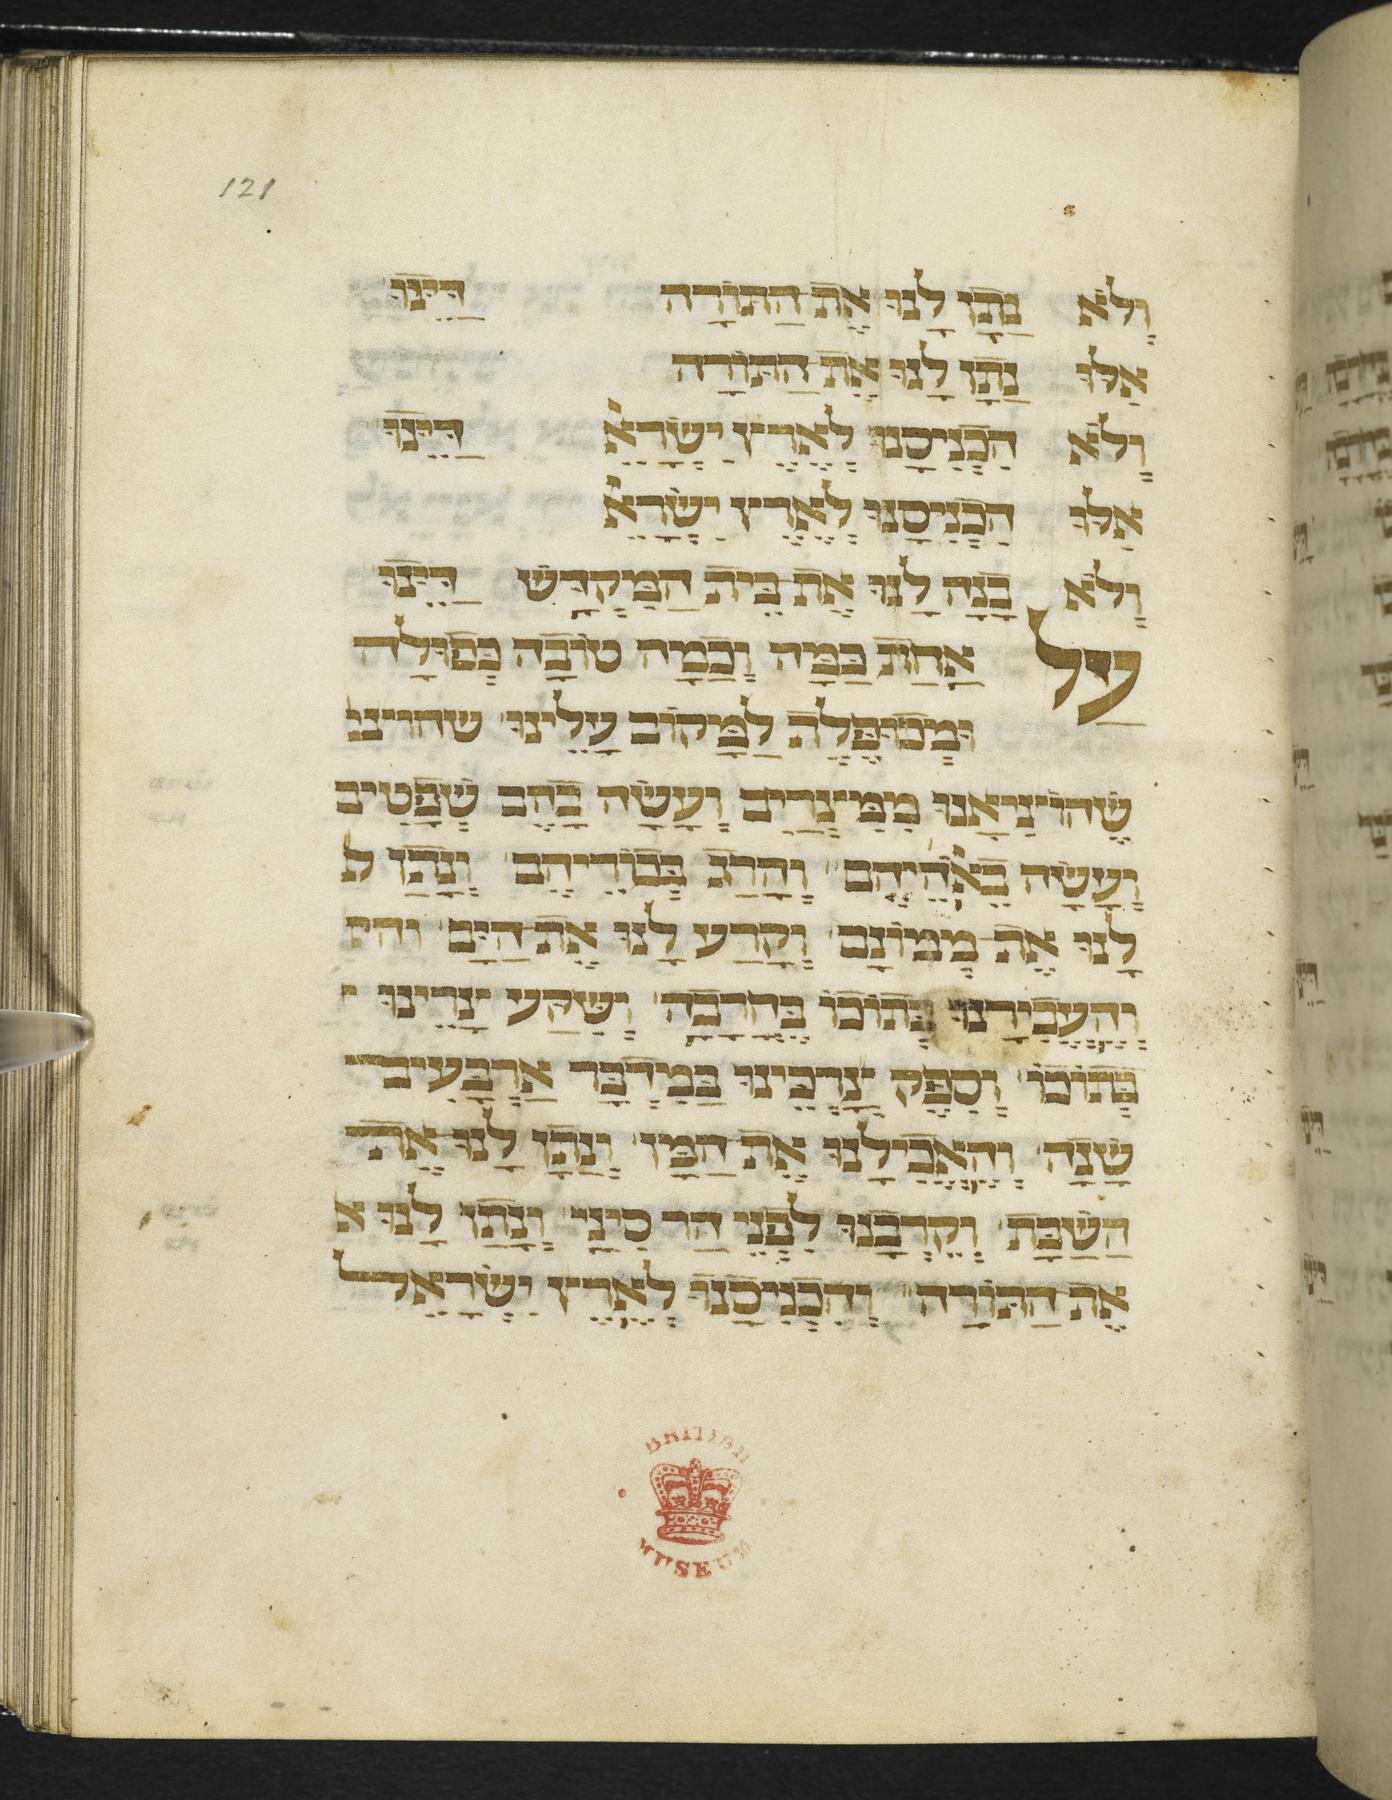 121
וְלֹא נָתַן לָנוּ אֶת הַתּוֹרָה דַיֵּינוּ
אִלּוּ נָתַן לָנוּ אֶת הַתּוֹרָה
וְלֹא הִכְנִיסָנוּ לְאֶרֶץ יִשְׂרָאֵ דַיֵּינוּ
אִלּוּ הִכְנִיסָנוּ לְאֶרֶץ יִשְׂרָאֵ
וְלֹא בָנָה לָנוּ אֶת בֵּית הַמִּקְדָּשׁ דַיֵּינוּ
עַל אַחַת כַּמָּה וְכַמָּה טוֹבָה כְּפוּלָה
וּמְכוּפֶּלֶת לַמָּקוֹם עָלֵינוּ שהויצי
שֶׁהוֹצִיאָנוּ מִמִּצְרַיִם וְעָשָׂה בָהֶם שְׁפָטִים
וְעָשָׂה בֵאלֹהֵיהֶם וְהָרַג בְּכוֹרֵיהֶם וְנָתַן ל
לָנוּ אֶת מָמוֹנָם וְקָרַע לָנוּ אֶת הַיָּם והע
וְהֶעֱבִירָנוּ בְּתוֹכוֹ בֶּחָרָבָה וְשִׁקַּע צָרֵינוּ
בְּתוֹכוֹ וְסִפֵּק צָרְכֵינוּ בַּמִּדְבָּר אַרְבָּעִים
שָׁנָה וְהֶאֱכִילָנוּ אֶת הַמָּן וְנָתַן לָנוּ אֶת
הַשַּׁבָּת וְקֵרְבָנוּ לִפְנֵי הַר סִינַי וְנָתַן לָנוּ א
אֶת הַתּוֹרָה וְהִכְנִיסָנוּ לְאֶרֶץ יִשְׂרָאֵל
BRITISH
MUSEUM